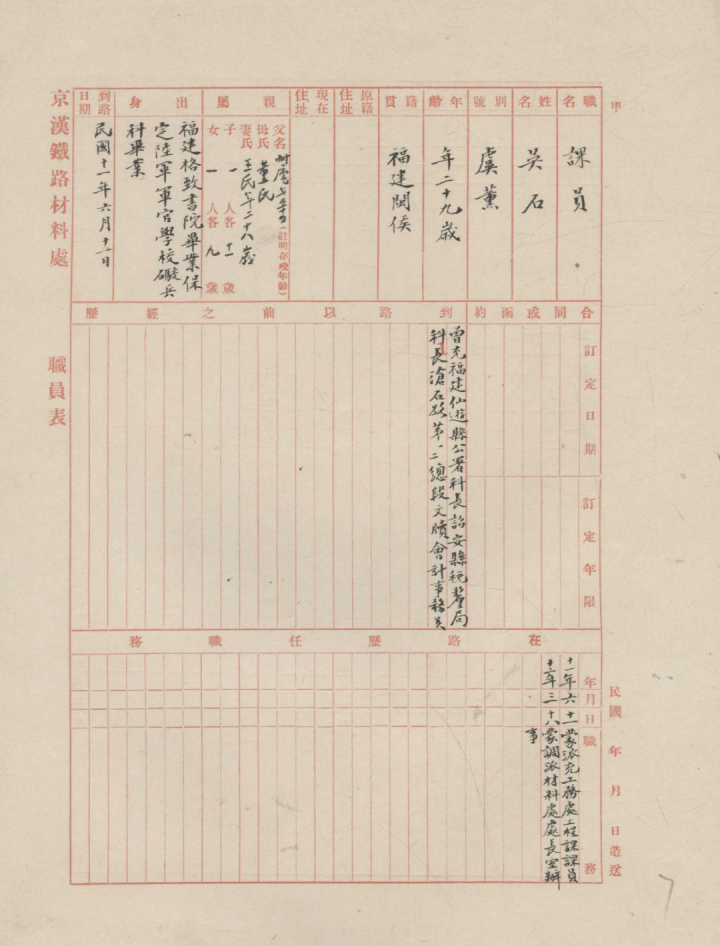 甲
職名
課員
姓名
吳石
別號
虞薰
年齡
年二十九歲
籍貫
福建閩侯
原籍住址
現在住址
親屬
父名（註明存歿年齡）
母氏董氏
妻氏王氏年二十八歲
子一人各十一歲
女一人各九歲
出身
福建格致書院畢業保
定陸軍軍官學校礮兵
科畢業
到路日期
民國十一年六月十二日
京漢鐵路材料處
職員表
合同或函約
訂定日期
訂定年限
到路以前之經歷
曾充福建仙遊縣公署科長詔安縣稅釐局
科長滄石路第一二總段文牘會計事務員
在路歷任職務
年月日
職務
十一年六十一蒙派充工務處工程課課員
十二年三十八蒙調派材料處處長室辦
事
民國 年 月 日造送
7